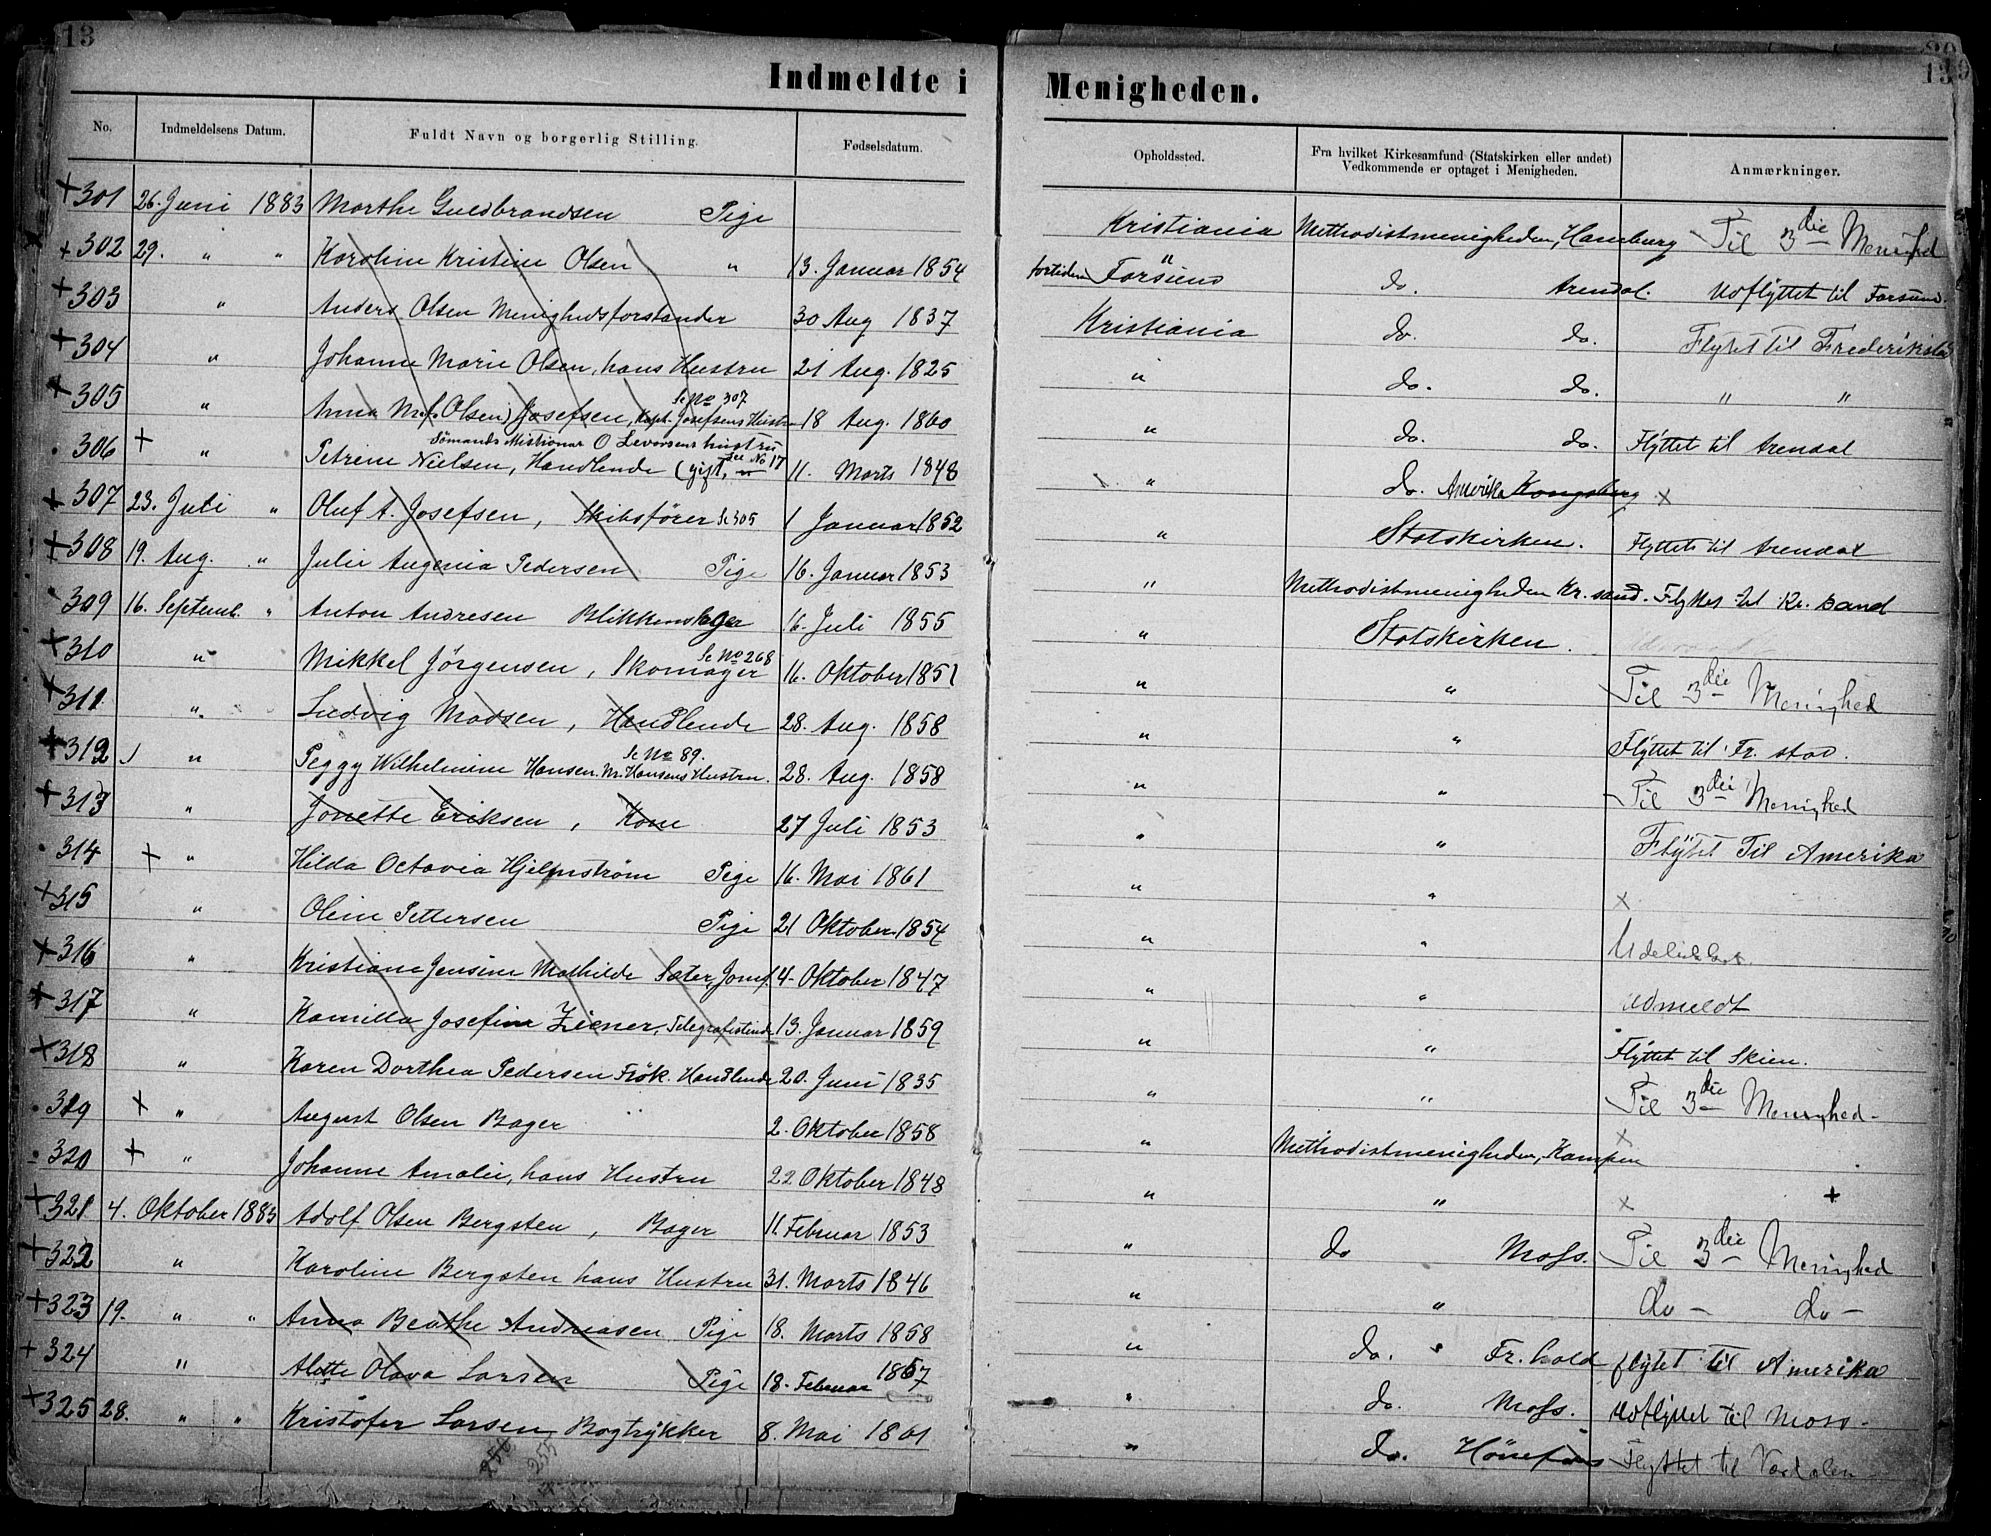 13
Indmeldte i Menigheden.
13
No. Indmeldelsens Datum. Fuldt Navn og borgerlig Stilling. Fødselsdatum. Opholdssted. Fra hvilket Kirkesamfund (Statskirken eller andet) Vedkommende er optaget i Menigheden. Anmærkninger.
+301 26. Juni 1883 Marthe Guldbrandsen Pige Kristiania Methodistmenigheden, Hamburg Til 3die Menighed
+302 29. " " Karoline Kristine Olsen " 13. Januar 1854 fortiden Farsund do. Arendal. Udflyttet til Farsund.
+303 " Anders Olsen Menighedsforstander 30 Aug 1837 Kristiania do. do. Flytet til Frederikstad
+304 " Johanne Marie Olsen, hans Hustru 21 Aug. 1825 " do. do. " "
+305 " Anna M. (f. Olsen) Josefsen, Kapt. Josefsens Hustru Se No 307 18 Aug. 1860 " do. do. Flyttet til Arendal
306 + " Petrine Nielsen, Handlende (gift, Sömands Missionær O Levorsens hustru see No 17 11. Marts 1848 " do. Amerika Kongsberg x
+307 23. Juli " Oluf A. Josefsen, Skibsfører Se 305 1 Januar 1852 " Statskirken. Flyttet til Arendal
+308 19. Aug. " Julie Augenia Pedersen Pige 16. Januar 1853 " Methodistmenigheden Kr. sand. Flyttet til Kr. sand
309 16. Septemb. " Anton Andresen Blikkenslager 16. Juli 1855 " Statskirken.
+310 " Mikkel Jörgensen, Skomager Se No 268 16. Oktober 1851 " " Til 3die Menighed
+311 " Ludvig Madsen, Handlende 28. Aug. 1858 " " Flyttet til Fr. stad.
+312 " Peggy Wilhelmine Hansen. M. Hansens Hustru. Se No 89. 28. Aug. 1858 " " Til 3die Menighed
+313 " Jonette Eriksen, Kone 27 Juli 1853 " " Flytet Til Amerika
314 + " Hilda Octavia Hjelmström Pige 16. Mai 1861 " " x
+315 " Oline Pettersen Pige 21 Oktober 1854 " " Udelukket.
+316 " Kristiane Jensine Mathilde Sæter, Jomf. 4. Oktober 1847 " " Udmeldt
+317 " Kamilla Josefine Ziener, Telegrafistinde 13. Januar 1859 " " Flyttet til Skien.
+318 " Karen Dorthea Pedersen Frök. Handlende 20. Juni 1835 " " Til 3die Menighed-
319 + " August Olsen Bager 2. Oktober 1858 " Methodistmenigheden, Kampen x
320 + " Johanne Amalie, hans Hustru 22 Oktober 1848 " " x +
+321 4. Oktober 1883 Adolf Olsen Bergsten, Bager 11. Februar 1853 " do Moss. Til 3die Menighed
+322 " Karoline Bergsten hans Hustru 31. Marts 1846 " " do - do -
+323 19. " " Anna Beathe Andreasen Pige 18. Marts 1858 " do. " Fr. hald flytet til Amerika
+324 " Alette Olava Larsen Pige 18. Februar 1867 " do. Moss. Udflyttet til Moss.
+325 28. " " Kristofer Larsen, Bogtrykker 8. Mai 1861 " do. Hönefoss Flyttet til Værdalen
255